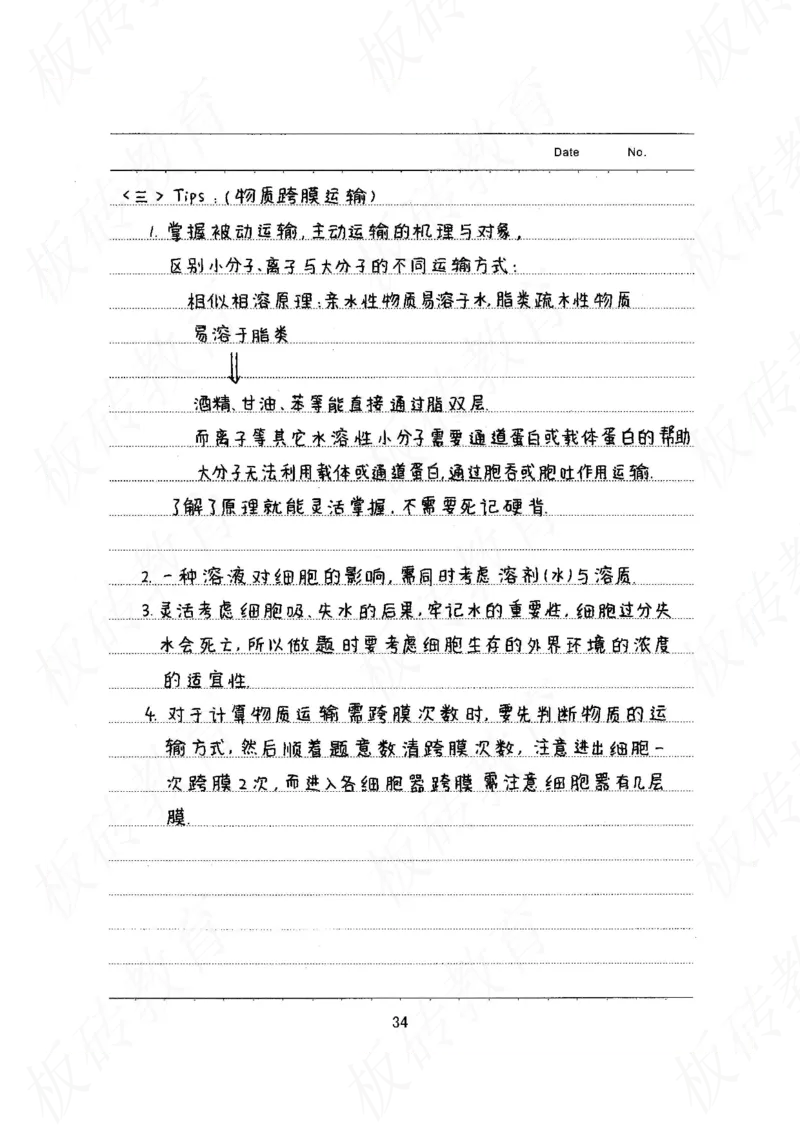 Date No.
<三> Tips：(物质跨膜运输)
1. 掌握被动运输,主动运输的机理与对象,
区别小分子、离子与大分子的不同运输方式：
相似相溶原理：亲水性物质易溶于水,脂类疏水性物质
易溶于脂类
⇓
酒精、甘油、苯等能直接通过脂双层.
而离子等其它水溶性小分子需要通道蛋白或载体蛋白的帮助
大分子无法利用载体或通道蛋白,通过胞吞或胞吐作用运输.
了解了原理就能灵活掌握,不需要死记硬背.
2. 一种溶液对细胞的影响,需同时考虑溶剂(水)与溶质.
3. 灵活考虑细胞吸、失水的后果,牢记水的重要性,细胞过分失
水会死亡,所以做题时要考虑细胞生存的外界环境的浓度
的适宜性.
4. 对于计算物质运输需跨膜次数时,要先判断物质的运
输方式,然后顺着题意数清跨膜次数,注意进出细胞一
次跨膜2次,而进入各细胞器跨膜需注意细胞器有几层
膜.
34
板砖教育